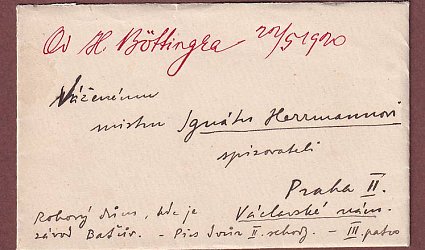 Od H. Böttingra 22/5 1920
Váženému
mistru Ignátu Herrmannovi
spisovateli
Praha II.
Rohový dům, kde je Václavské nám.
závod Baťův. - II. schod. - III. patro